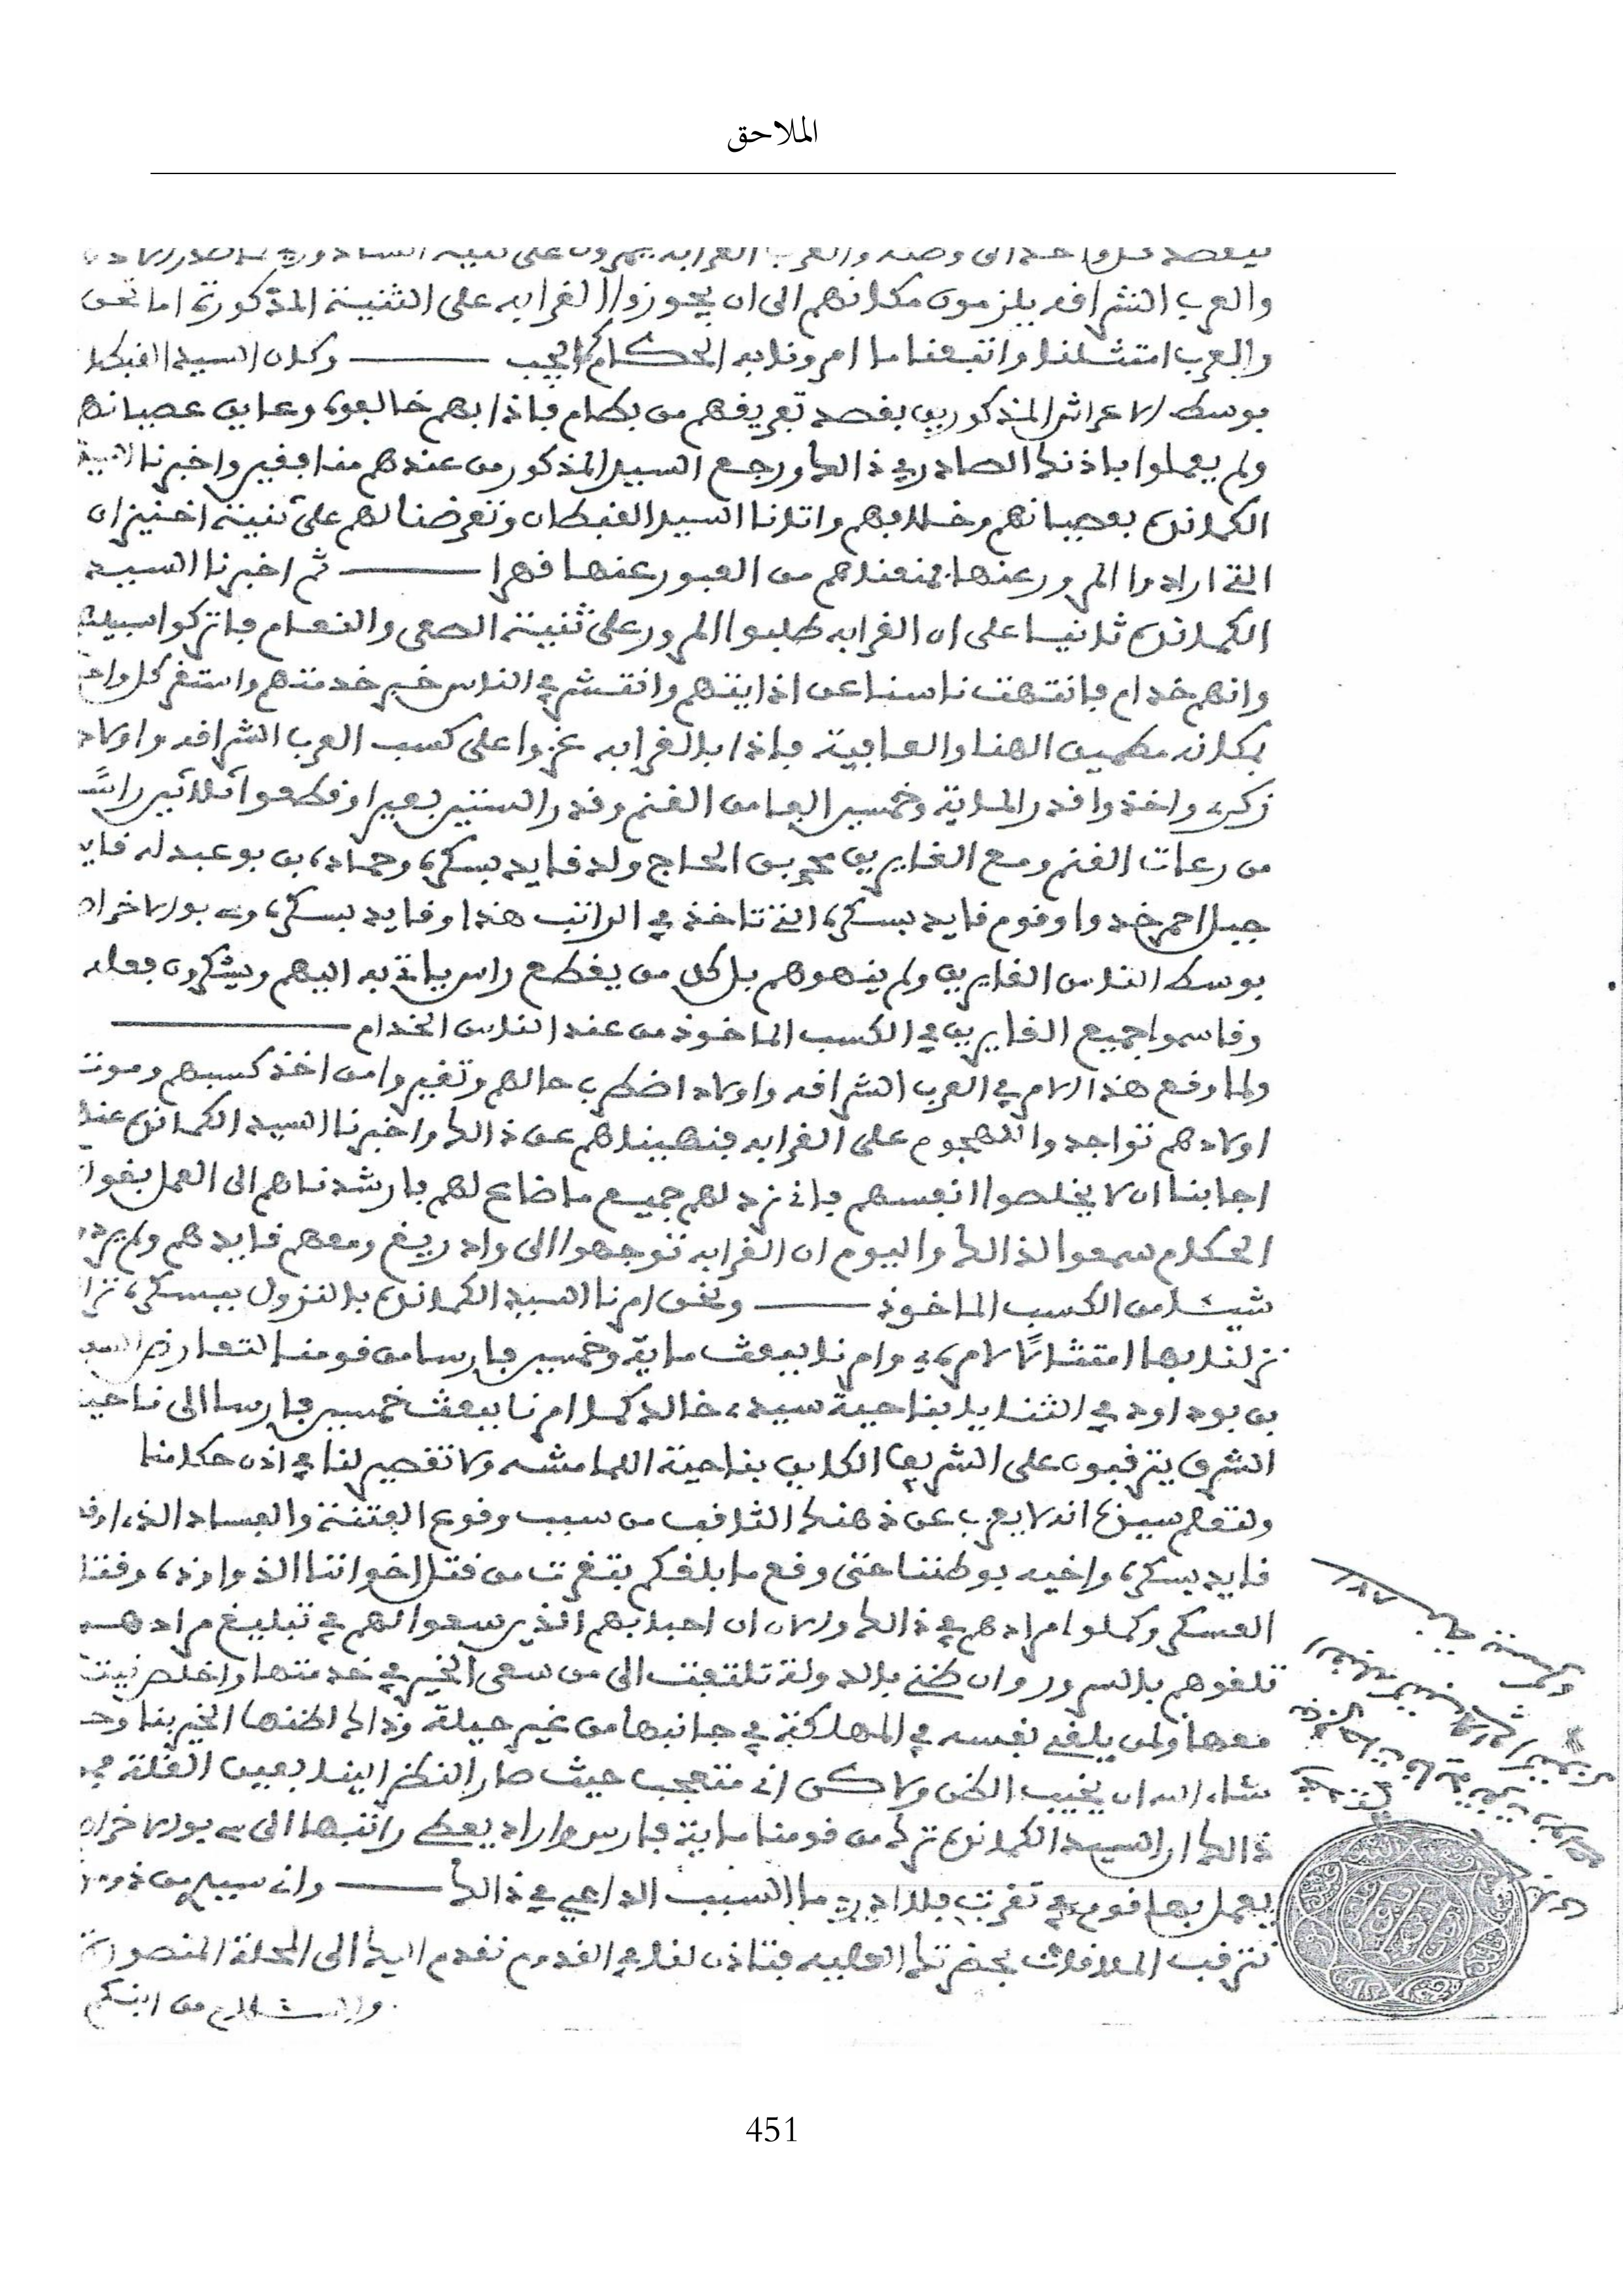 الملاحق
والعرب الشراقه يلزمون مكانهم الى ان يجوزوا الغرابه على الثنية المذكورة اما نحن
والعرب امتثلنا واتبعنا ما امرونا به الحكام وكان السيد القبطا
بوسط الاعراش المذكورين بقصد تعريفهم من بطام فاذا بهم خالفوه وعاين عصيانهم
ولم يعملوا باذنك الصادر في ذالك ورجع السيد المذكور من عندهم منافقين واخبرنا السيد
الكماندن بعصيانهم وخلافهم واتانا السيد القبطان وتعرضنا لهم على ثنية اخنيزان
التي ارادوا المرور عنها فمنعناهم من العبور عنها قهرا ثم اخبرنا السيد
الكماندن ثانيا على ان الغرابه طلبوا المرور على ثنية الصعى والنعام فاتركوا سبيلهم
وانهم خدام فانتهت ناسنا عن اذايتهم وانتشر في الناس خبر خدمتهم واستقر كل واحد
بمكانه مطمين الهنا والعافية فاذا بالغرابه غزوا على كسب العرب الشراقه واولاد
زكري واخذوا قدر الماية وخمسين الفا من الغنم وقدر الستين بعيرا وقطعوا ثلاثين راسًا
من رعات الغنم ومع الغايرين محمد بن الحاج ولد قايد بسكرة وحماده بن بوعبدله قايد
جبل احمر خدو وقوم قايد بسكرة التي تاخذ في الراتب هذا وقايد بسكرة وسي بولاخراص
بوسط الناس الغايرين ولم ينهوهم بل كل من يقطع راس ياتي به اليهم ويشكرون فعله
وقاسموا جميع الغايرين في الكسب الماخوذ من عند الناس الخدام
ولما وقع هذا الامر في العرب الشراقه واولاد اضطرب حالهم وتغيروا من اخذ كسبهم وموت
اولادهم تواجدوا للهجوم على الغرابه فنهيناهم عن ذالك واخبرنا السيد الكماندن عند
اجابنا ان لا يخلصوا انفسهم فاني نرد لهم جميع ما ضاع لهم فارشدناهم الى العمل بقول
الحكام سمعوا لذالك واليوم ان الغرابه توجهوا الى واد ريغ ومعهم قايدهم ولم يردوا
شيئا من الكسب الماخوذ ونحن امرنا السيد الكماندن بالنزول ببسكرة
نزلنا بها امتثالًا لامره وامرنا ببعث ماية وخمسين فارسا من قومنا لتعارض السعيد
بن بوداود في الثنايا بناحية سيدي خالد كما امرنا ببعث خمسين فارسا الى ناحية
الشرق يترقبون على الشريف الكاين بناحية اللمامشه ولا تقصير لنا في اذن حكامنا
ولتعلم سيدي انه لا يعزب عن ذهنك الثاقب من سبب وقوع الفتنة والفساد الذي
قايد بسكرة واخيه بوطننا حتى وقع ما بلغكم بتقرت من قتل اخواننا الذواودة وقتل
العسكر وكملوا مرادهم في ذالك والان ان احبابهم الذين سعوا لهم في تبليغ مرادهم
تلقوهم بالسرور وان ظني بالدولة تلتفت الى من سعى الخير في خدمتها واخلص نيته
معها ولمن يلقي نفسه في المهلكة في جانبها من غير حيلة وذالك لظنها الخير بنا
شاء الله ان يخيب الظن ولاكن اني متعجب حيث صار النظر الينا بعين القلة
ذالك ان السيد الكماندن ترك من قومنا ماية فارس واراد يعطي راتبها الى سي بولاخراص
يعمل بها قوم في تقرت فلا ادري ما السبب الداعي في ذالك واني سيدي
نترقب الملاقات بحضرتك العليه فتاذن لنا في القدوم نقدم اليك الى المحلة المنصورة
والسلام من ابنكم
451